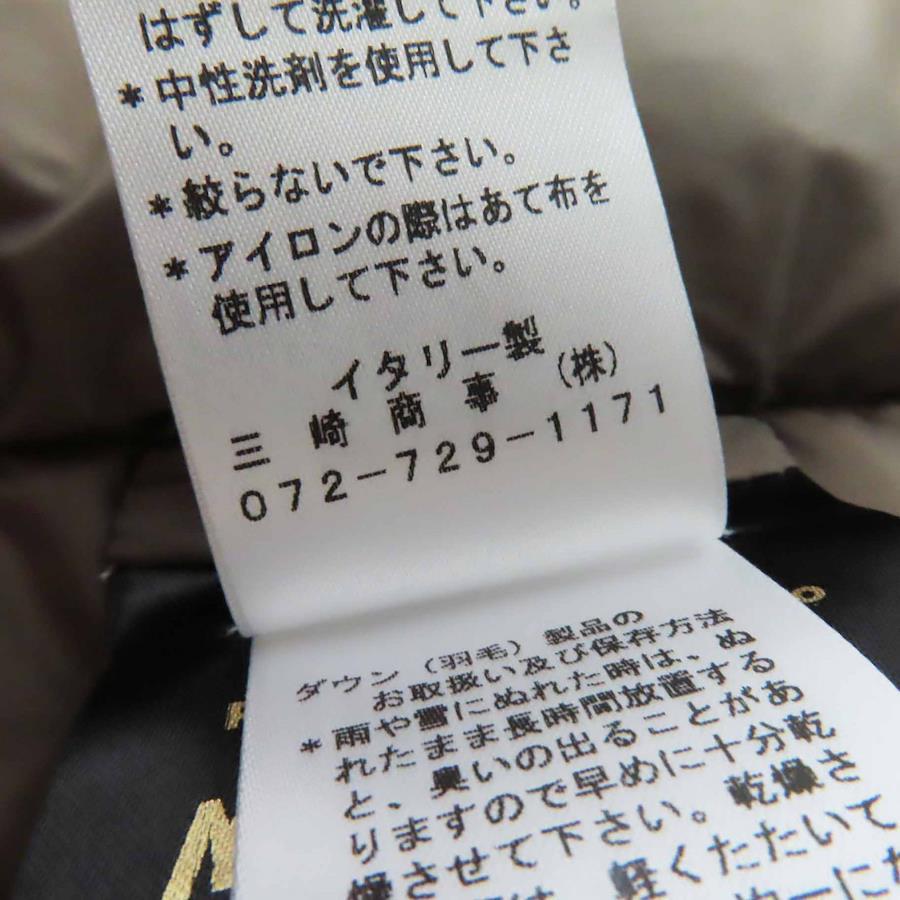 はずして洗濯して下さい。
* 中性洗剤を使用して下さ
い。
* 絞らないで下さい。
* アイロンの際はあて布を
使用して下さい。
イタリー製
三崎商事(株)
072-729-1171
ダウン(羽毛)製品の
お取扱い及び保存方法
* 雨や雪にぬれた時は、ぬ
れたまま長時間放置する
と、臭いの出ることがあ
りますので早めに十分乾
燥させて下さい。乾燥さ
軽くたたいて